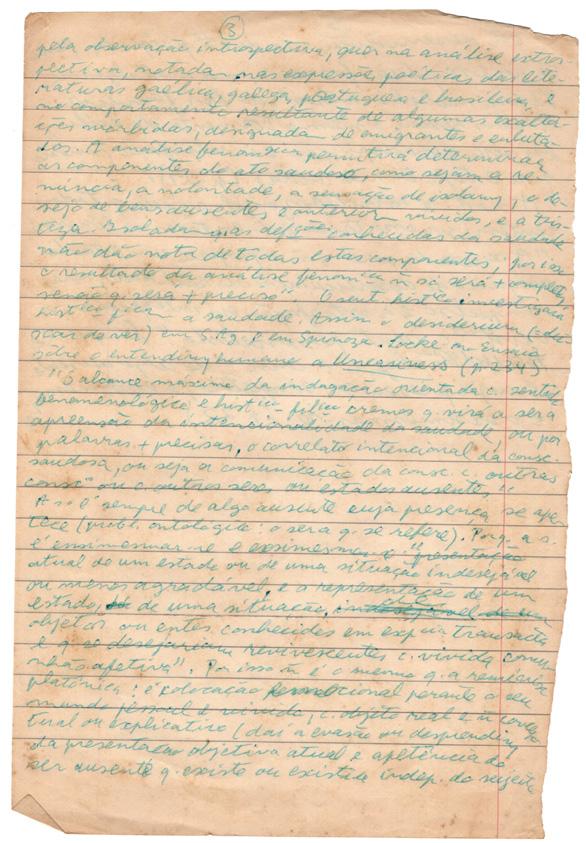 3
pela observação introspectiva, quer na análise extros-
pectiva, notadam. nas expressões poéticas das lite-
raturas gaélica, galega, portuguesa e brasileira, e
no comportamento resultante de algumas exalta-
ções mórbidas, designadam. de emigrantes e
A análise permitirá determinar
os componentes do ato saudoso, como sejam a re-
núncia, a nolontade, a sensação de o de-
sejo de bens ausentes, anteriorm. vividos, e a tris-
teza. Isoladam. as conhecidas da saudade
não dão nota de todas estas componentes, por isso
o resultado da análise ñ só será + completo,
senão q. será + preciso". O
a saudade. Assim o desiderium (=de-
de ver) em S. Ag. e em Spinoza. Locke no Ensaio
sobre o entendim. humano a Uneasiness (p. 234)
"O alcance máximo da indagação orientada c. sentido
fenomenológico e cremos q. virá a ser a
apreensão da intencionalidade da saudade, ou por
palavras + precisas, o correlato intencional da consc.
saudosa, ou seja a comunicação da consc. c. outras
ou c. outros seres ou estados ausentes".
A s. é sempre de algo ausente cuja presença se ape-
tece (probl. ontológico: o ser a q. se refere). Porq. a s.
é ensimesmar-se e "presentação
atual de um estado ou de uma situação indesejável
ou menos agradável, e a representação de um
estado, de uma situação,
objetos ou entes conhecidos em transacta
e q. se desejariam revivescentes c. vivida comu-
nhão afetiva". Por isso ñ é o mesmo q. a reminisc.
platónica: é colocação emocional perante o seu
mundo pessoal e vivido, c. objeto real e ñ
tual ou explicativo (daí a evasão ou desprendim.
da presentação objetiva atual e apetência do
ser ausente q. existe ou existiu indep. do sujeito